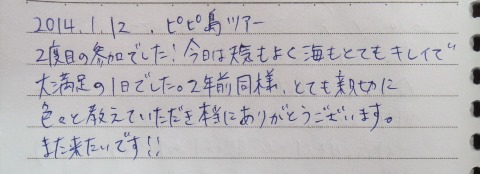 2014.1.12 . ピピ島ツアー
2度目の参加でした！今日は天気もよく海もとてもキレイで
大満足の1日でした。2年前同様、とても親切に
色々と教えていただき本当にありがとうございます。
また来たいです!!